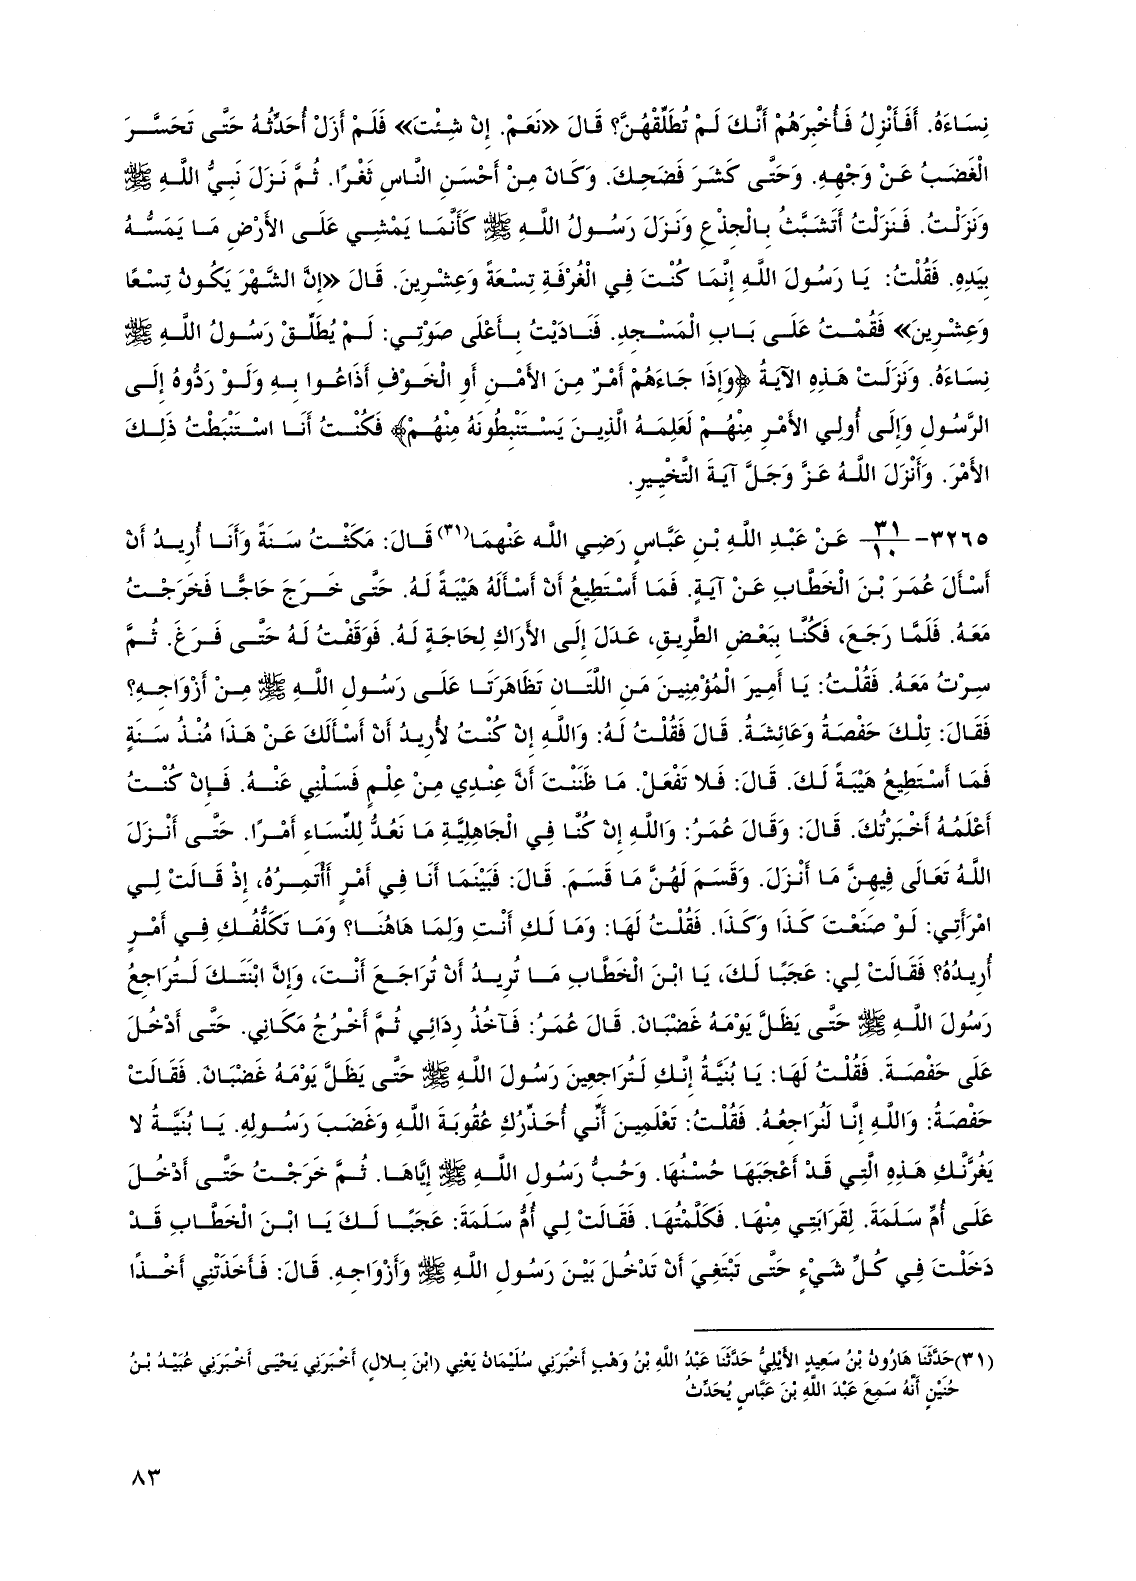 نِسَاءَهُ. أَفَأَنْزِلُ فَأُخْبِرَهُمْ أَنَّكَ لَمْ تُطَلِّقْهُنَّ؟ قَالَ «نَعَمْ. إِنْ شِئْتَ» فَلَمْ أَزَلْ أُحَدِّثُهُ حَتَّى تَحَسَّرَ
الْغَضَبُ عَنْ وَجْهِهِ. وَحَتَّى كَشَرَ فَضَحِكَ. وَكَانَ مِنْ أَحْسَنِ النَّاسِ ثَغْرًا. ثُمَّ نَزَلَ نَبِيُّ اللَّهِ ﷺ
وَنَزَلْتُ. فَنَزَلْتُ أَتَشَبَّثُ بِالْجِذْعِ وَنَزَلَ رَسُولُ اللَّهِ ﷺ كَأَنَّمَا يَمْشِي عَلَى الأَرْضِ مَا يَمَسُّهُ
بِيَدِهِ. فَقُلْتُ: يَا رَسُولَ اللَّهِ إِنَّمَا كُنْتَ فِي الْغُرْفَةِ تِسْعَةً وَعِشْرِينَ. قَالَ «إِنَّ الشَّهْرَ يَكُونُ تِسْعًا
وَعِشْرِينَ» فَقُمْتُ عَلَى بَابِ الْمَسْجِدِ. فَنَادَيْتُ بِأَعْلَى صَوْتِي: لَمْ يُطَلِّقْ رَسُولُ اللَّهِ ﷺ
نِسَاءَهُ. وَنَزَلَتْ هَذِهِ الآيَةُ ﴿وَإِذَا جَاءَهُمْ أَمْرٌ مِنَ الأَمْنِ أَوِ الْخَوْفِ أَذَاعُوا بِهِ وَلَوْ رَدُّوهُ إِلَى
الرَّسُولِ وَإِلَى أُولِي الأَمْرِ مِنْهُمْ لَعَلِمَهُ الَّذِينَ يَسْتَنْبِطُونَهُ مِنْهُمْ﴾ فَكُنْتُ أَنَا اسْتَنْبَطْتُ ذَلِكَ
الأَمْرَ. وَأَنْزَلَ اللَّهُ عَزَّ وَجَلَّ آيَةَ التَّخْيِيرِ.
٣٢٦٥- ٣١/١٠ عَنْ عَبْدِ اللَّهِ بْنِ عَبَّاسٍ رَضِي اللَّه عَنْهمَا(٣١) قَالَ: مَكَثْتُ سَنَةً وَأَنَا أُرِيدُ أَنْ
أَسْأَلَ عُمَرَ بْنَ الْخَطَّابِ عَنْ آيَةٍ. فَمَا أَسْتَطِيعُ أَنْ أَسْأَلَهُ هَيْبَةً لَهُ. حَتَّى خَرَجَ حَاجًّا فَخَرَجْتُ
مَعَهُ. فَلَمَّا رَجَعَ، فَكُنَّا بِبَعْضِ الطَّرِيقِ، عَدَلَ إِلَى الأَرَاكِ لِحَاجَةٍ لَهُ. فَوَقَفْتُ لَهُ حَتَّى فَرَغَ. ثُمَّ
سِرْتُ مَعَهُ. فَقُلْتُ: يَا أَمِيرَ الْمُؤْمِنِينَ مَنِ اللَّتَانِ تَظَاهَرَتَا عَلَى رَسُولِ اللَّهِ ﷺ مِنْ أَزْوَاجِهِ؟
فَقَالَ: تِلْكَ حَفْصَةُ وَعَائِشَةُ. قَالَ فَقُلْتُ لَهُ: وَاللَّهِ إِنْ كُنْتُ لأُرِيدُ أَنْ أَسْأَلَكَ عَنْ هَذَا مُنْذُ سَنَةٍ
فَمَا أَسْتَطِيعُ هَيْبَةً لَكَ. قَالَ: فَلا تَفْعَلْ. مَا ظَنَنْتَ أَنَّ عِنْدِي مِنْ عِلْمٍ فَسَلْنِي عَنْهُ. فَإِنْ كُنْتُ
أَعْلَمُهُ أَخْبَرْتُكَ. قَالَ: وَقَالَ عُمَرُ: وَاللَّهِ إِنْ كُنَّا فِي الْجَاهِلِيَّةِ مَا نَعُدُّ لِلنِّسَاءِ أَمْرًا. حَتَّى أَنْزَلَ
اللَّهُ تَعَالَى فِيهِنَّ مَا أَنْزَلَ. وَقَسَمَ لَهُنَّ مَا قَسَمَ. قَالَ: فَبَيْنَمَا أَنَا فِي أَمْرٍ أَأْتَمِرُهُ، إِذْ قَالَتْ لِي
امْرَأَتِي: لَوْ صَنَعْتَ كَذَا وَكَذَا. فَقُلْتُ لَهَا: وَمَا لَكِ أَنْتِ وَلِمَا هَاهُنَا؟ وَمَا تَكَلُّفُكِ فِي أَمْرٍ
أُرِيدُهُ؟ فَقَالَتْ لِي: عَجَبًا لَكَ، يَا ابْنَ الْخَطَّابِ مَا تُرِيدُ أَنْ تُرَاجَعَ أَنْتَ، وَإِنَّ ابْنَتَكَ لَتُرَاجِعُ
رَسُولَ اللَّهِ ﷺ حَتَّى يَظَلَّ يَوْمَهُ غَضْبَانَ. قَالَ عُمَرُ: فَآخُذُ رِدَائِي ثُمَّ أَخْرُجُ مَكَانِي. حَتَّى أَدْخُلَ
عَلَى حَفْصَةَ. فَقُلْتُ لَهَا: يَا بُنَيَّةُ إِنَّكِ لَتُرَاجِعِينَ رَسُولَ اللَّهِ ﷺ حَتَّى يَظَلَّ يَوْمَهُ غَضْبَانَ. فَقَالَتْ
حَفْصَةُ: وَاللَّهِ إِنَّا لَنُرَاجِعُهُ. فَقُلْتُ: تَعْلَمِينَ أَنِّي أُحَذِّرُكِ عُقُوبَةَ اللَّهِ وَغَضَبَ رَسُولِهِ. يَا بُنَيَّةُ لا
يَغُرَّنَّكِ هَذِهِ الَّتِي قَدْ أَعْجَبَهَا حُسْنُهَا. وَحُبُّ رَسُولِ اللَّهِ ﷺ إِيَّاهَا. ثُمَّ خَرَجْتُ حَتَّى أَدْخُلَ
عَلَى أُمِّ سَلَمَةَ. لِقَرَابَتِي مِنْهَا. فَكَلَّمْتُهَا. فَقَالَتْ لِي أُمُّ سَلَمَةَ: عَجَبًا لَكَ يَا ابْنَ الْخَطَّابِ قَدْ
دَخَلْتَ فِي كُلِّ شَيْءٍ حَتَّى تَبْتَغِيَ أَنْ تَدْخُلَ بَيْنَ رَسُولِ اللَّهِ ﷺ وَأَزْوَاجِهِ. قَالَ: فَأَخَذَتْنِي أَخْذًا
(٣١)حَدَّثَنَا هَارُونُ بْنُ سَعِيدٍ الأَيْلِيُّ حَدَّثَنَا عَبْدُ اللَّهِ بْنُ وَهْبٍ أَخْبَرَنِي سُلَيْمَانُ يَعْنِي (ابْنَ بِلالٍ) أَخْبَرَنِي يَحْيَى أَخْبَرَنِي عُبَيْدُ بْنُ
حُنَيْنٍ أَنَّهُ سَمِعَ عَبْدَ اللَّهِ بْنَ عَبَّاسٍ يُحَدِّثُ
٨٣